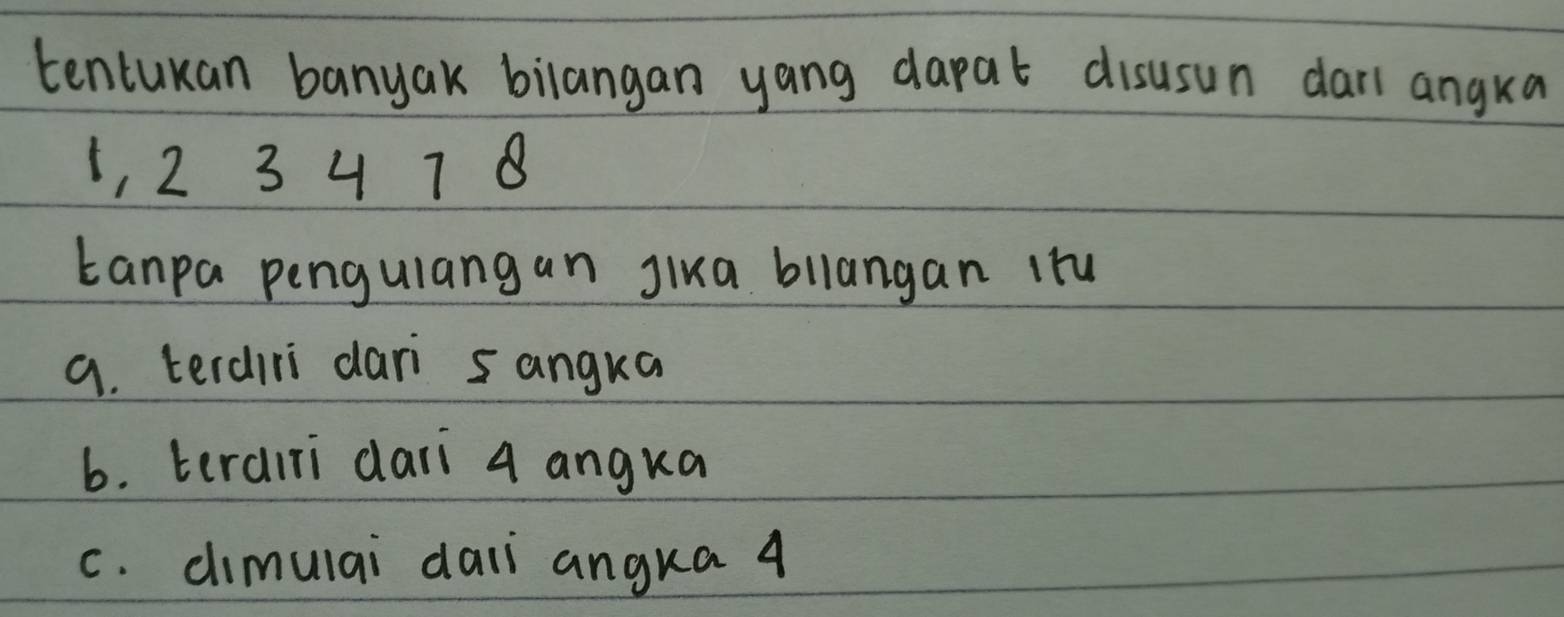 tentukan banyak bilangan yang dapat disusun dari angka
1, 2 3 4 7 8
tanpa pengulangan jika bilangan itu
a. terdiri dari 5 angka
b. terdiri dari 4 angka
c. dimulai dari angka 4